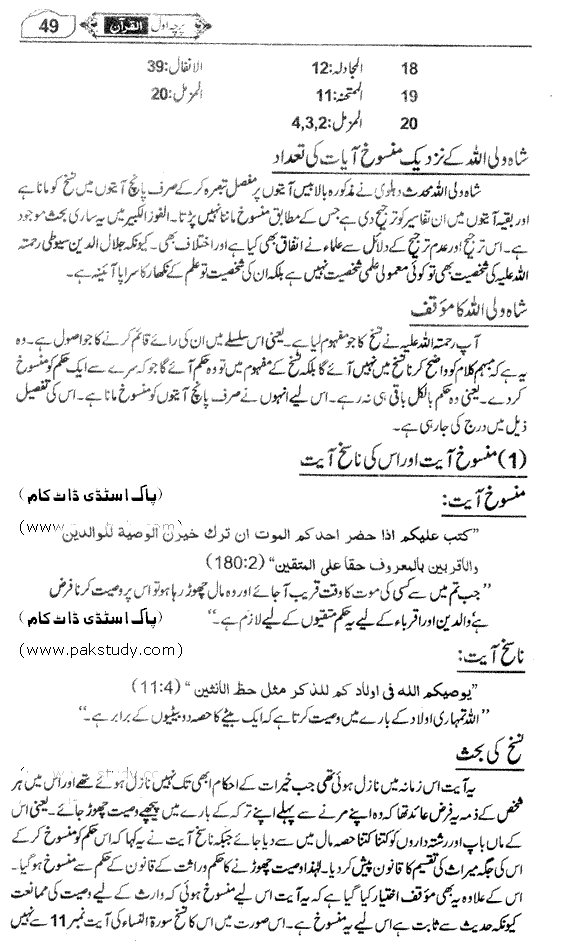 پرچہ اول القرآن 49
18 المجادلہ:12 الانفال:39
19 الممتحنہ:11 المزمل:20
20 المزمل:4,3,2
شاہ ولی اللہ کے نزدیک منسوخ آیات کی تعداد
شاہ ولی اللہ محدث دہلوی نے مذکورہ بالا بیس آیتوں پر مفصل تبصرہ کر کے صرف پانچ آیتوں میں نسخ کو مانا ہے
اور بقیہ آیتوں میں ان تفاسیر کو ترجیح دی ہے جس کے مطابق منسوخ ماننا نہیں پڑتا۔ الفوز الکبیر میں یہ ساری بحث موجود
ہے۔ اس ترجیح اور عدم ترجیح کے دلائل سے علماء نے اتفاق بھی کیا ہے اور اختلاف بھی۔ کیونکہ جلال الدین سیوطی رحمتہ
اللہ علیہ کی شخصیت بھی تو کوئی معمولی علمی شخصیت نہیں ہے بلکہ ان کی شخصیت تو علم کے نکھار کا سراپا آئینہ ہے۔
شاہ ولی اللہ کا مؤقف
آپ رحمتہ اللہ علیہ نے نسخ کا جو مفہوم لیا ہے۔ یعنی اس سلسلے میں ان کی رائے قائم کرنے کا جو اصول ہے۔ وہ
یہ ہے کہ مبہم کلام کو واضح کرنا نسخ میں نہیں آئے گا بلکہ نسخ کے مفہوم میں تو وہ حکم آئے گا جو کہ سرے سے ایک حکم کو منسوخ
کر دے۔ یعنی وہ حکم بالکل باقی ہی نہ رہے۔ اس لیے انہوں نے صرف پانچ آیتوں کو منسوخ مانا ہے۔ اس کی تفصیل
ذیل میں درج کی جا رہی ہے۔
(1) منسوخ آیت اور اس کی ناسخ آیت
منسوخ آیت: (پاک اسٹڈی ڈاٹ کام)
(www. .com)
”کتب علیکم اذا حضر احدکم الموت ان ترک خیرن الوصیة للوالدین
والأقربین بالمعروف حقا علی المتقین“ (180:2)
”جب تم میں سے کسی کی موت کا وقت قریب آ جائے اور وہ مال چھوڑ رہا ہو تو اس پر وصیت کرنا فرض
ہے والدین اور اقرباء کے لیے یہ حکم متقیوں کے لیے لازم ہے۔“ (پاک اسٹڈی ڈاٹ کام)
ناسخ آیت: (www.pakstudy.com)
”یوصیکم الله فی اولاد کم للذکر مثل حظ الأنثین“ (11:4)
”اللہ تمہاری اولاد کے بارے میں وصیت کرتا ہے کہ ایک بیٹے کا حصہ دو بیٹیوں کے برابر ہے۔“
نسخ کی بحث
یہ آیت اس زمانہ میں نازل ہوئی تھی جب خیرات کے احکام ابھی تک نہیں نازل ہوئے تھے اور اس میں ہر
شخص کے ذمہ یہ فرض عائد تھا کہ وہ اپنے مرنے سے پہلے اپنے ترکہ کے بارے میں پیچھے وصیت چھوڑ جائے۔ یعنی اس
کے ماں باپ اور رشتہ داروں کو کتنا کتنا حصہ مال میں سے دیا جائے جبکہ ناسخ آیت نے یہ کہا کہ اس حکم کو منسوخ کر کے
اس کی جگہ میراث کی تقسیم کا قانون پیش کر دیا۔ لہذا وصیت چھوڑنے کا حکم وراثت کے قانون کے حکم سے منسوخ ہو گیا۔
اس کے علاوہ یہ بھی مؤقف اختیار کیا گیا ہے کہ یہ آیت اس لیے منسوخ ہوئی کہ وارث کے لیے وصیت کی ممانعت
کیونکہ حدیث سے ثابت ہے اس لیے یہ منسوخ ہے۔ اس صورت میں اس کا نسخ سورۃ النساء کی آیت نمبر 11 سے نہیں